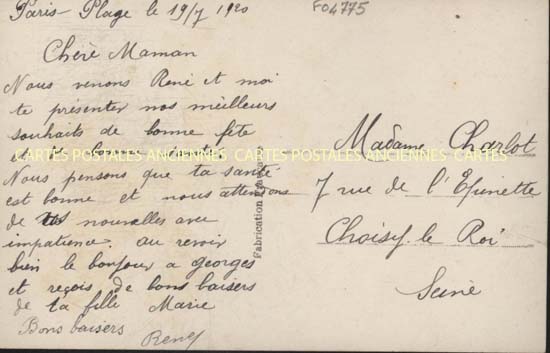 Paris-Plage le 19/7 1920
F04775
Chère Maman
Nous venons René et moi
te présenter nos meilleurs
souhaits de bonne fête
et de bonne santé.
Nous pensons que ta santé
est bonne et nous attendons
de tes nouvelles avec
impatience. au revoir
bien le bonjour a georges
et reçois de bons baisers
de ta fille Marie
Bons baisers
René
CARTES POSTALES ANCIENNES CARTES POSTALES ANCIENNES CARTES
Fabrication Française
Madame Charlot
7 rue de l'Epinette
Choisy. le Roi
Seine